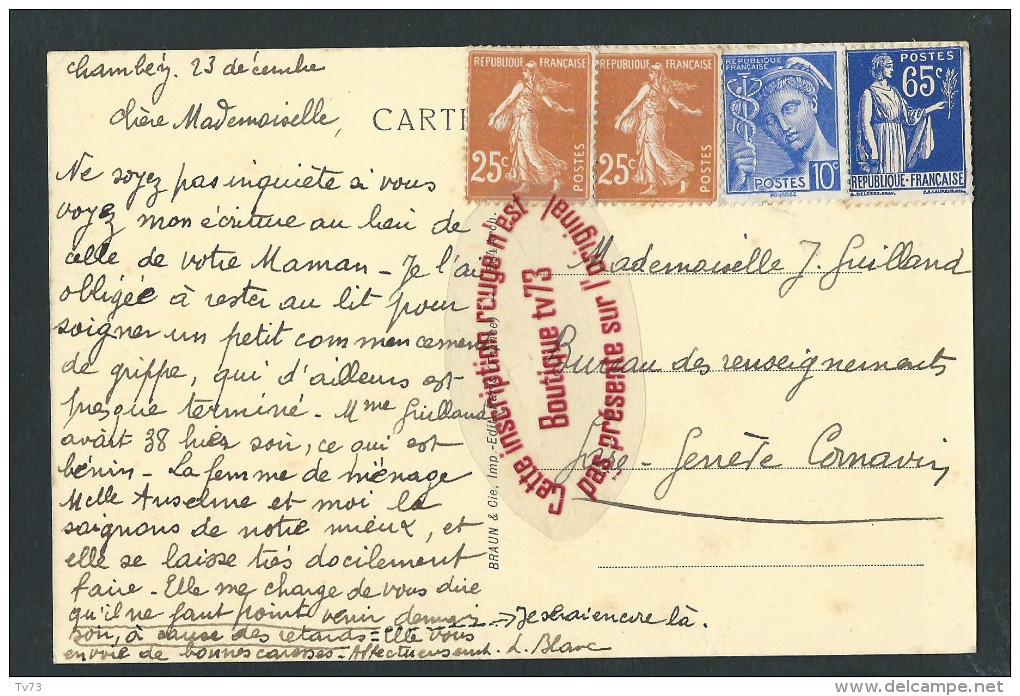 Chambéry. 23 décembre
Chère Mademoiselle,
Ne soyez pas inquiète si vous
voyez mon écriture au lieu de
celle de votre Maman - Je l'ai
obligée à rester au lit pour
soigner un petit commencement
de grippe, qui d'ailleurs est
presque terminé - Mme Guilland
avait 38 hier soir, ce qui est
bénin - La femme de ménage
Melle Anselme et moi la
soignons de notre mieux, et
elle se laisse très docilement
faire - Elle me charge de vous dire
qu'il ne faut point venir demain
soir, à cause des retards - Elle vous
envoie de bonnes caresses - Affectueusement. L. Blanc
Je serai encore là.
CARTE
REPUBLIQUE FRANÇAISE
25c
POSTES
REPUBLIQUE FRANÇAISE
25c
POSTES
REPUBLIQUE
FRANÇAISE
POSTES 10c
POSTES
65c
REPUBLIQUE-FRANÇAISE
Mademoiselle J. Guilland
Bureau des renseignements
Gare - Genève Cornavin
BRAUN & Cie, Imp.-Edit.
Cette inscription rouge n'est
pas présente sur l'original
Boutique tv73
Tv73
delcampe.net